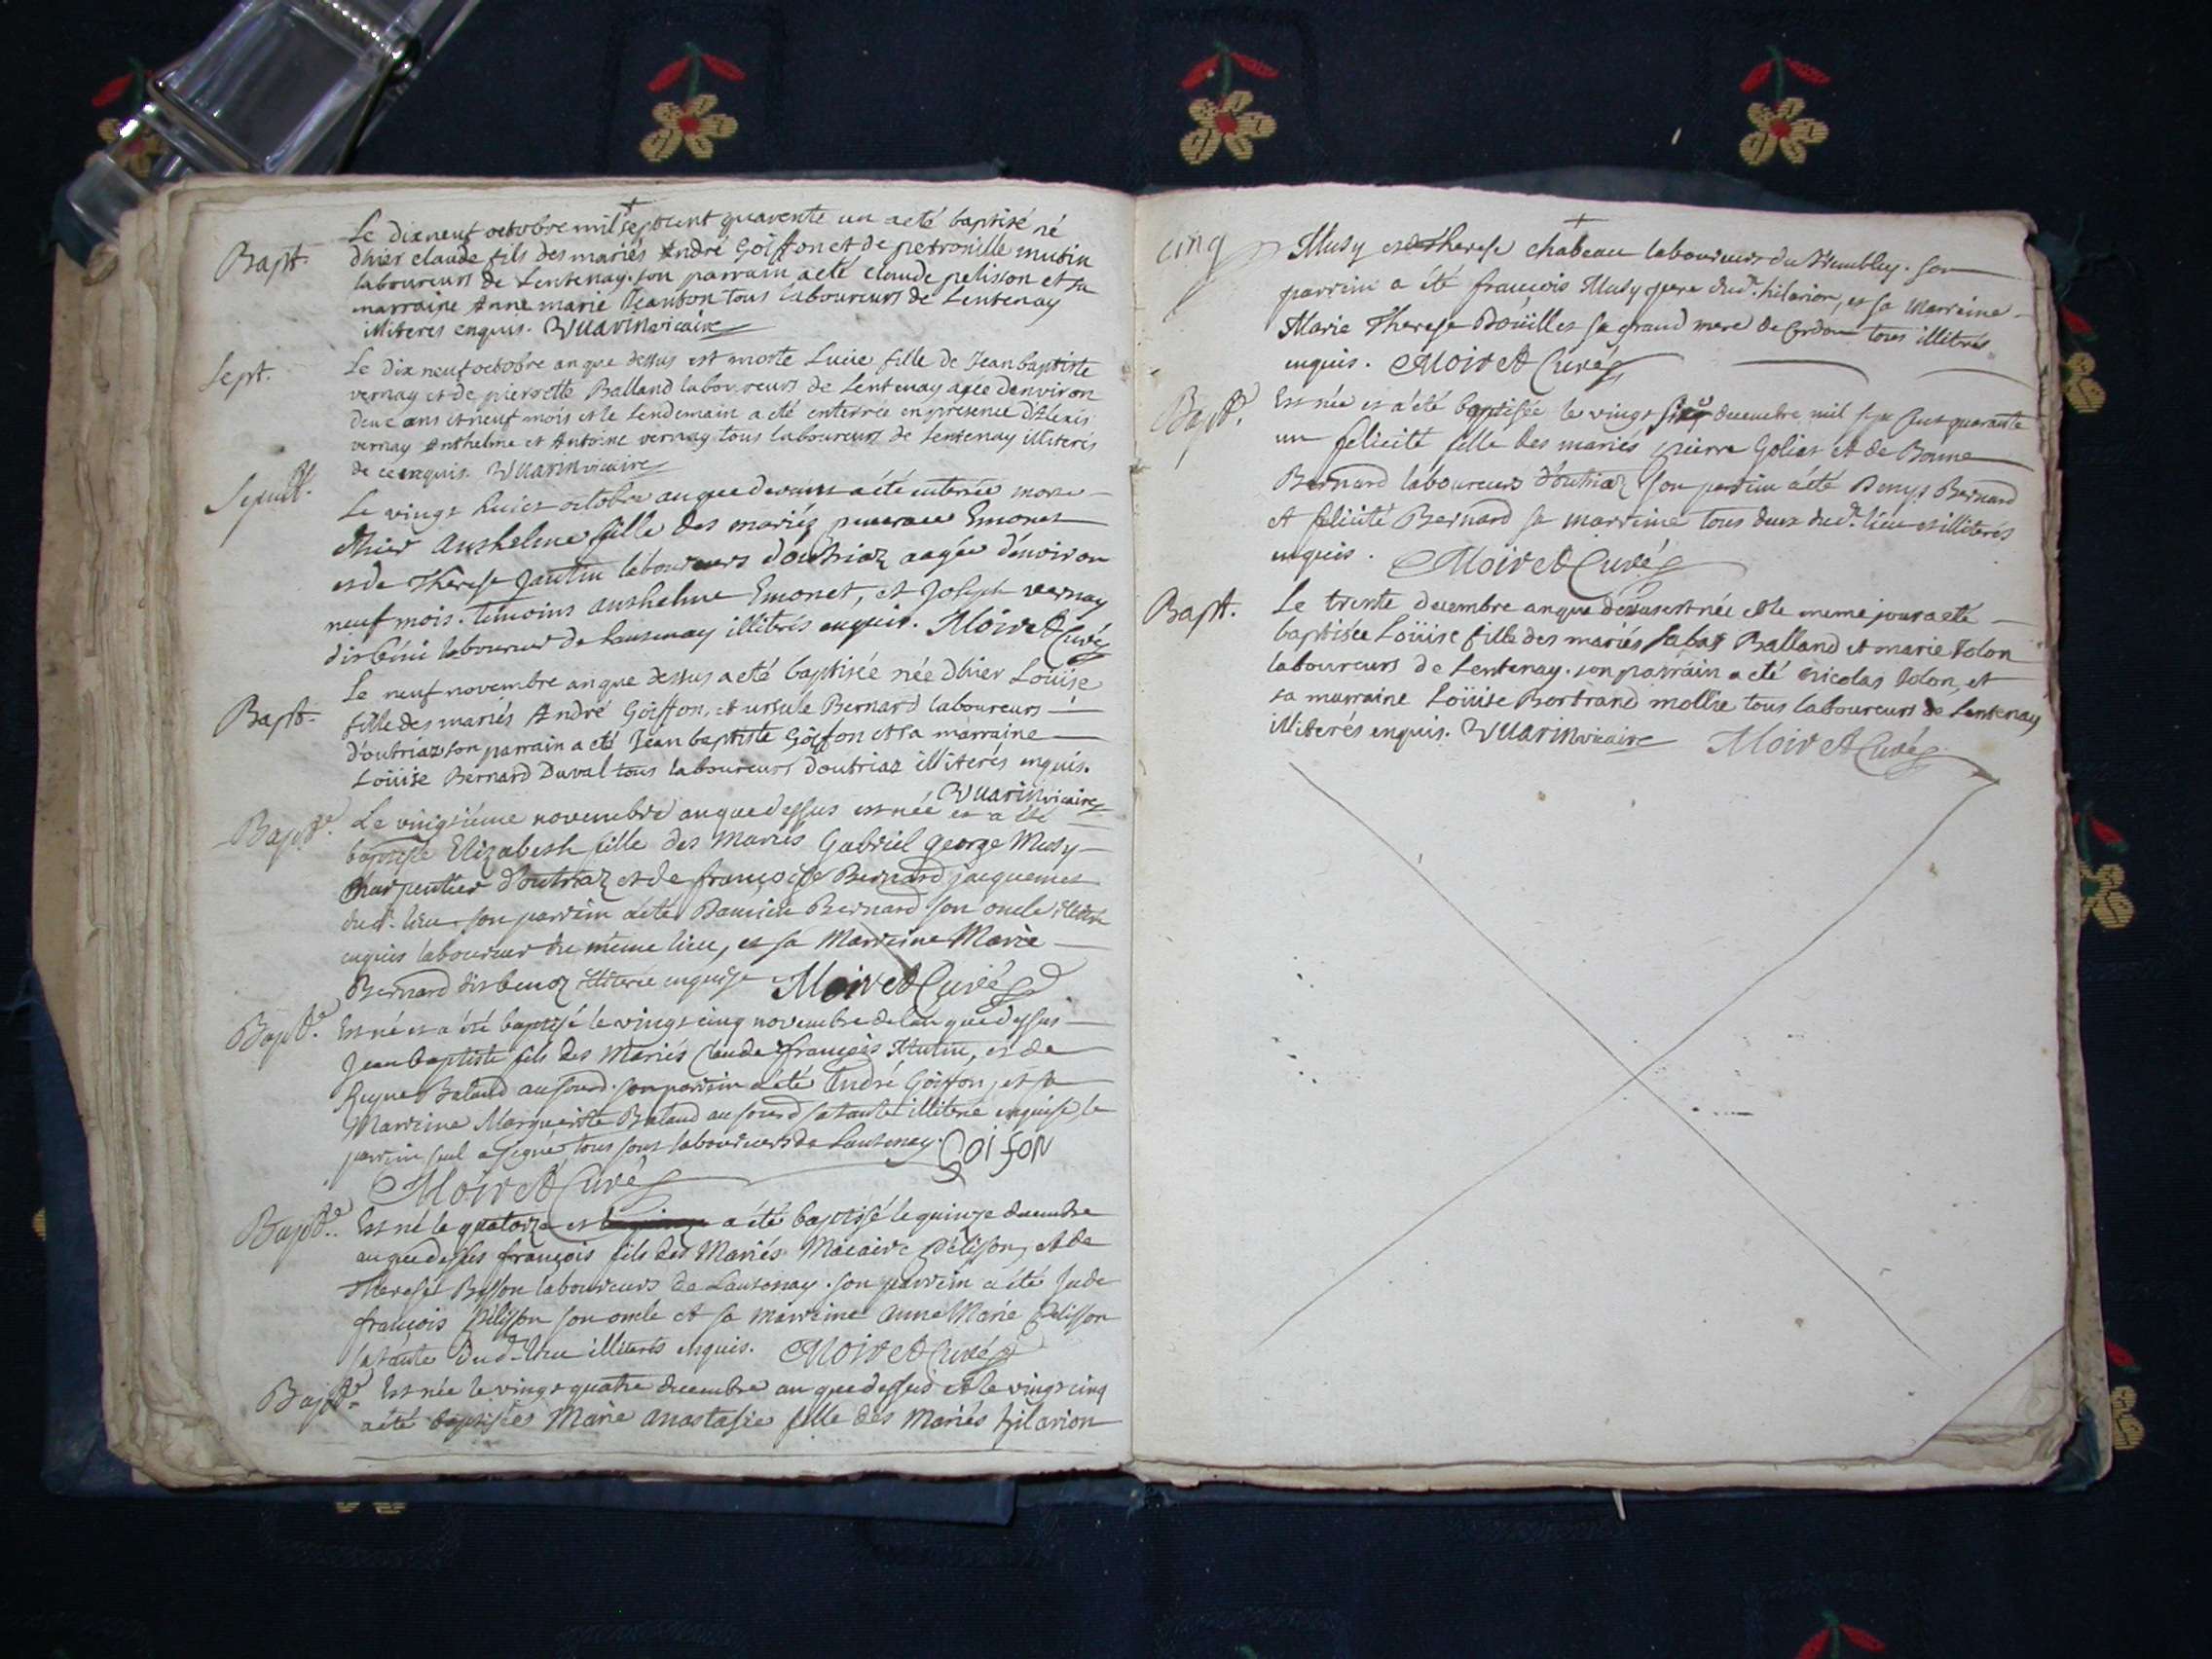 Le dix neuf octobre mil sept cent quarente un a eté baptisé né
Bapt. d'hier claude fils des mariés André Goiffon et de petronille mutin
laboureurs de Lentenay. son parrain a eté claude pelisson et sa
marraine Anne marie Jeanton tous laboureurs de Lentenay
illiteres enquis. Vuarin vicaire
Sept. Le dix neuf octobre an que dessus est morte Lucie fille de Jean baptiste
vernay et de pierrette Balland laboureurs de Lentenay agée d'environ
deux ans et neuf mois et le lendemain a eté enterrée en presence d'Alexis
vernay Anthelme et Antoine vernay tous laboureurs de Lentenay illiterés
de ce enquis. Vuarin vicaire
Sepult. Le vingt huict octobre an que devant a été enterrée morte
d'hier Anthelme fille des mariés Emonet
et de Therese Jantin laboureurs d'outriaz aagée d'environ
neuf mois. Temoins anthelme Emonet, et Joseph vernay
dit béni laboureur de Lantenay illitrés enquis. Moiret Curé
Le neuf novembre an que dessus a eté baptisée née d'hier Louise
Bapt. fille des mariés André Goiffon, et ursule Bernard laboureurs
d'outriaz son parrain a eté Jean baptiste Goiffon et sa marraine
Loüise Bernard Duval tous laboureurs d'outriaz illiterés enquis.
Vuarin vicaire
Bapt.e Le vingtiéme novembre an que dessus est née et a été
baptisée Elizabeth fille des Mariés Gabriel george Musy
Charpentier d'outriaz et de françoise Bernard jacquemet
dud. lieu. son parrein a été Damien Bernard son oncle
enquis laboureur du même lieu, et sa Marreine Marie
Bernard dit benoz illiterée enquise Moiret Curé
Bapt.e Est né et a été baptisé le vingt cinq novembre de l'an que dessus
Jean baptiste fils des Mariés Claude françois Mutin, et de
Reyne Baland au sourd. son parrein a été André Goiffon, et sa
Marreine Marguerite Baland au sourd sa tante illiterée enquise, le
parrein seul a signé tous sont laboureurs de Lantenay. Goifon
Moiret Curé
Bapt.e Est né le quatorze et a été baptisé le quinze decembre
an que dessus françois fils des Mariés Macaire Pelisson, et de
Therese Bysson laboureurs de Lantenay. son parrein a été Jude
françois Pelisson son oncle et sa marreine anne Marie Pelisson
sa tante dud. lieu illiterés enquis. Moiret Curé
Bapt.e Est née le vingt quatre decembre an que dessus et le vingt cinq
a été baptisées Marie anastasie fille des Mariés hilarion
cinq Musy et de Therese chabeau laboureurs du Tremblay. son
parrein a été françois Musy pere dud. hilarion, et sa marreine
Marie Therese Boüillet sa grand mere de Cordon tous illitrés
enquis. Moiret Curé
Bapt.e Est née et a été baptisée le vingt six decembre mil sept cent quarante
un felicité fille des mariés pierre Golias et de Bonne
Bernard laboureurs d'outriaz son parrein a été Denys Bernard
et felicité Bernard sa marreine tous deux dud. lieu et illiterés
enquis. Moiret Curé
Bapt. Le trente decembre an que dessus est née et le meme jour a eté
baptisée Loüise fille des mariés Sabas Balland et marie Tolon
laboureurs de Lentenay. son parrain a eté nicolas Tolon, et
sa marraine Loüise Bertrand mollie tous laboureurs de Lentenay
illiterés enquis. Vuarin vicaire Moiret Curé